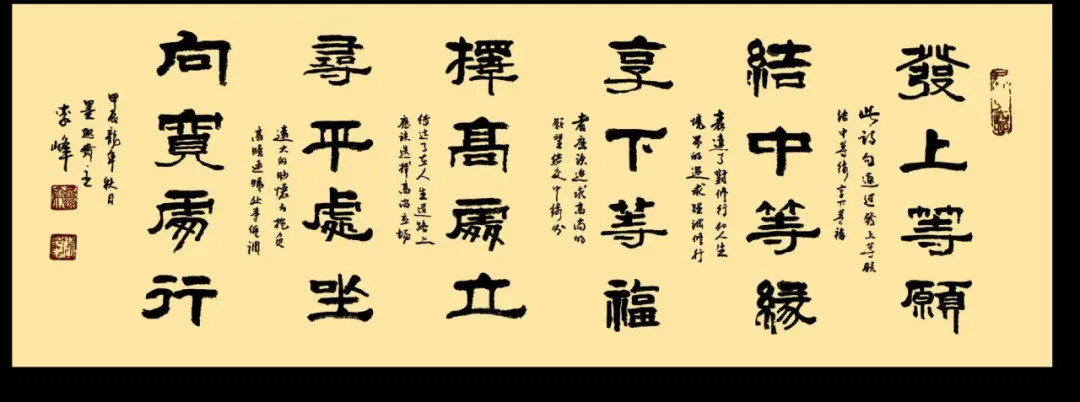 發上等願
此诗句通过發上等願
結中等缘享下等福
結中等緣
表達了對修行和人生
境界的追求 强调修行
享下等福
者應该追求高尚的
願望結交中等缘分
擇髙處立
傳达了在人生道路上
應该选擇高尚立场
尋平處坐
遠大的胸懷与抱負
高瞻远瞩处事低调
向寬處行
甲辰龍年秋日
李峰